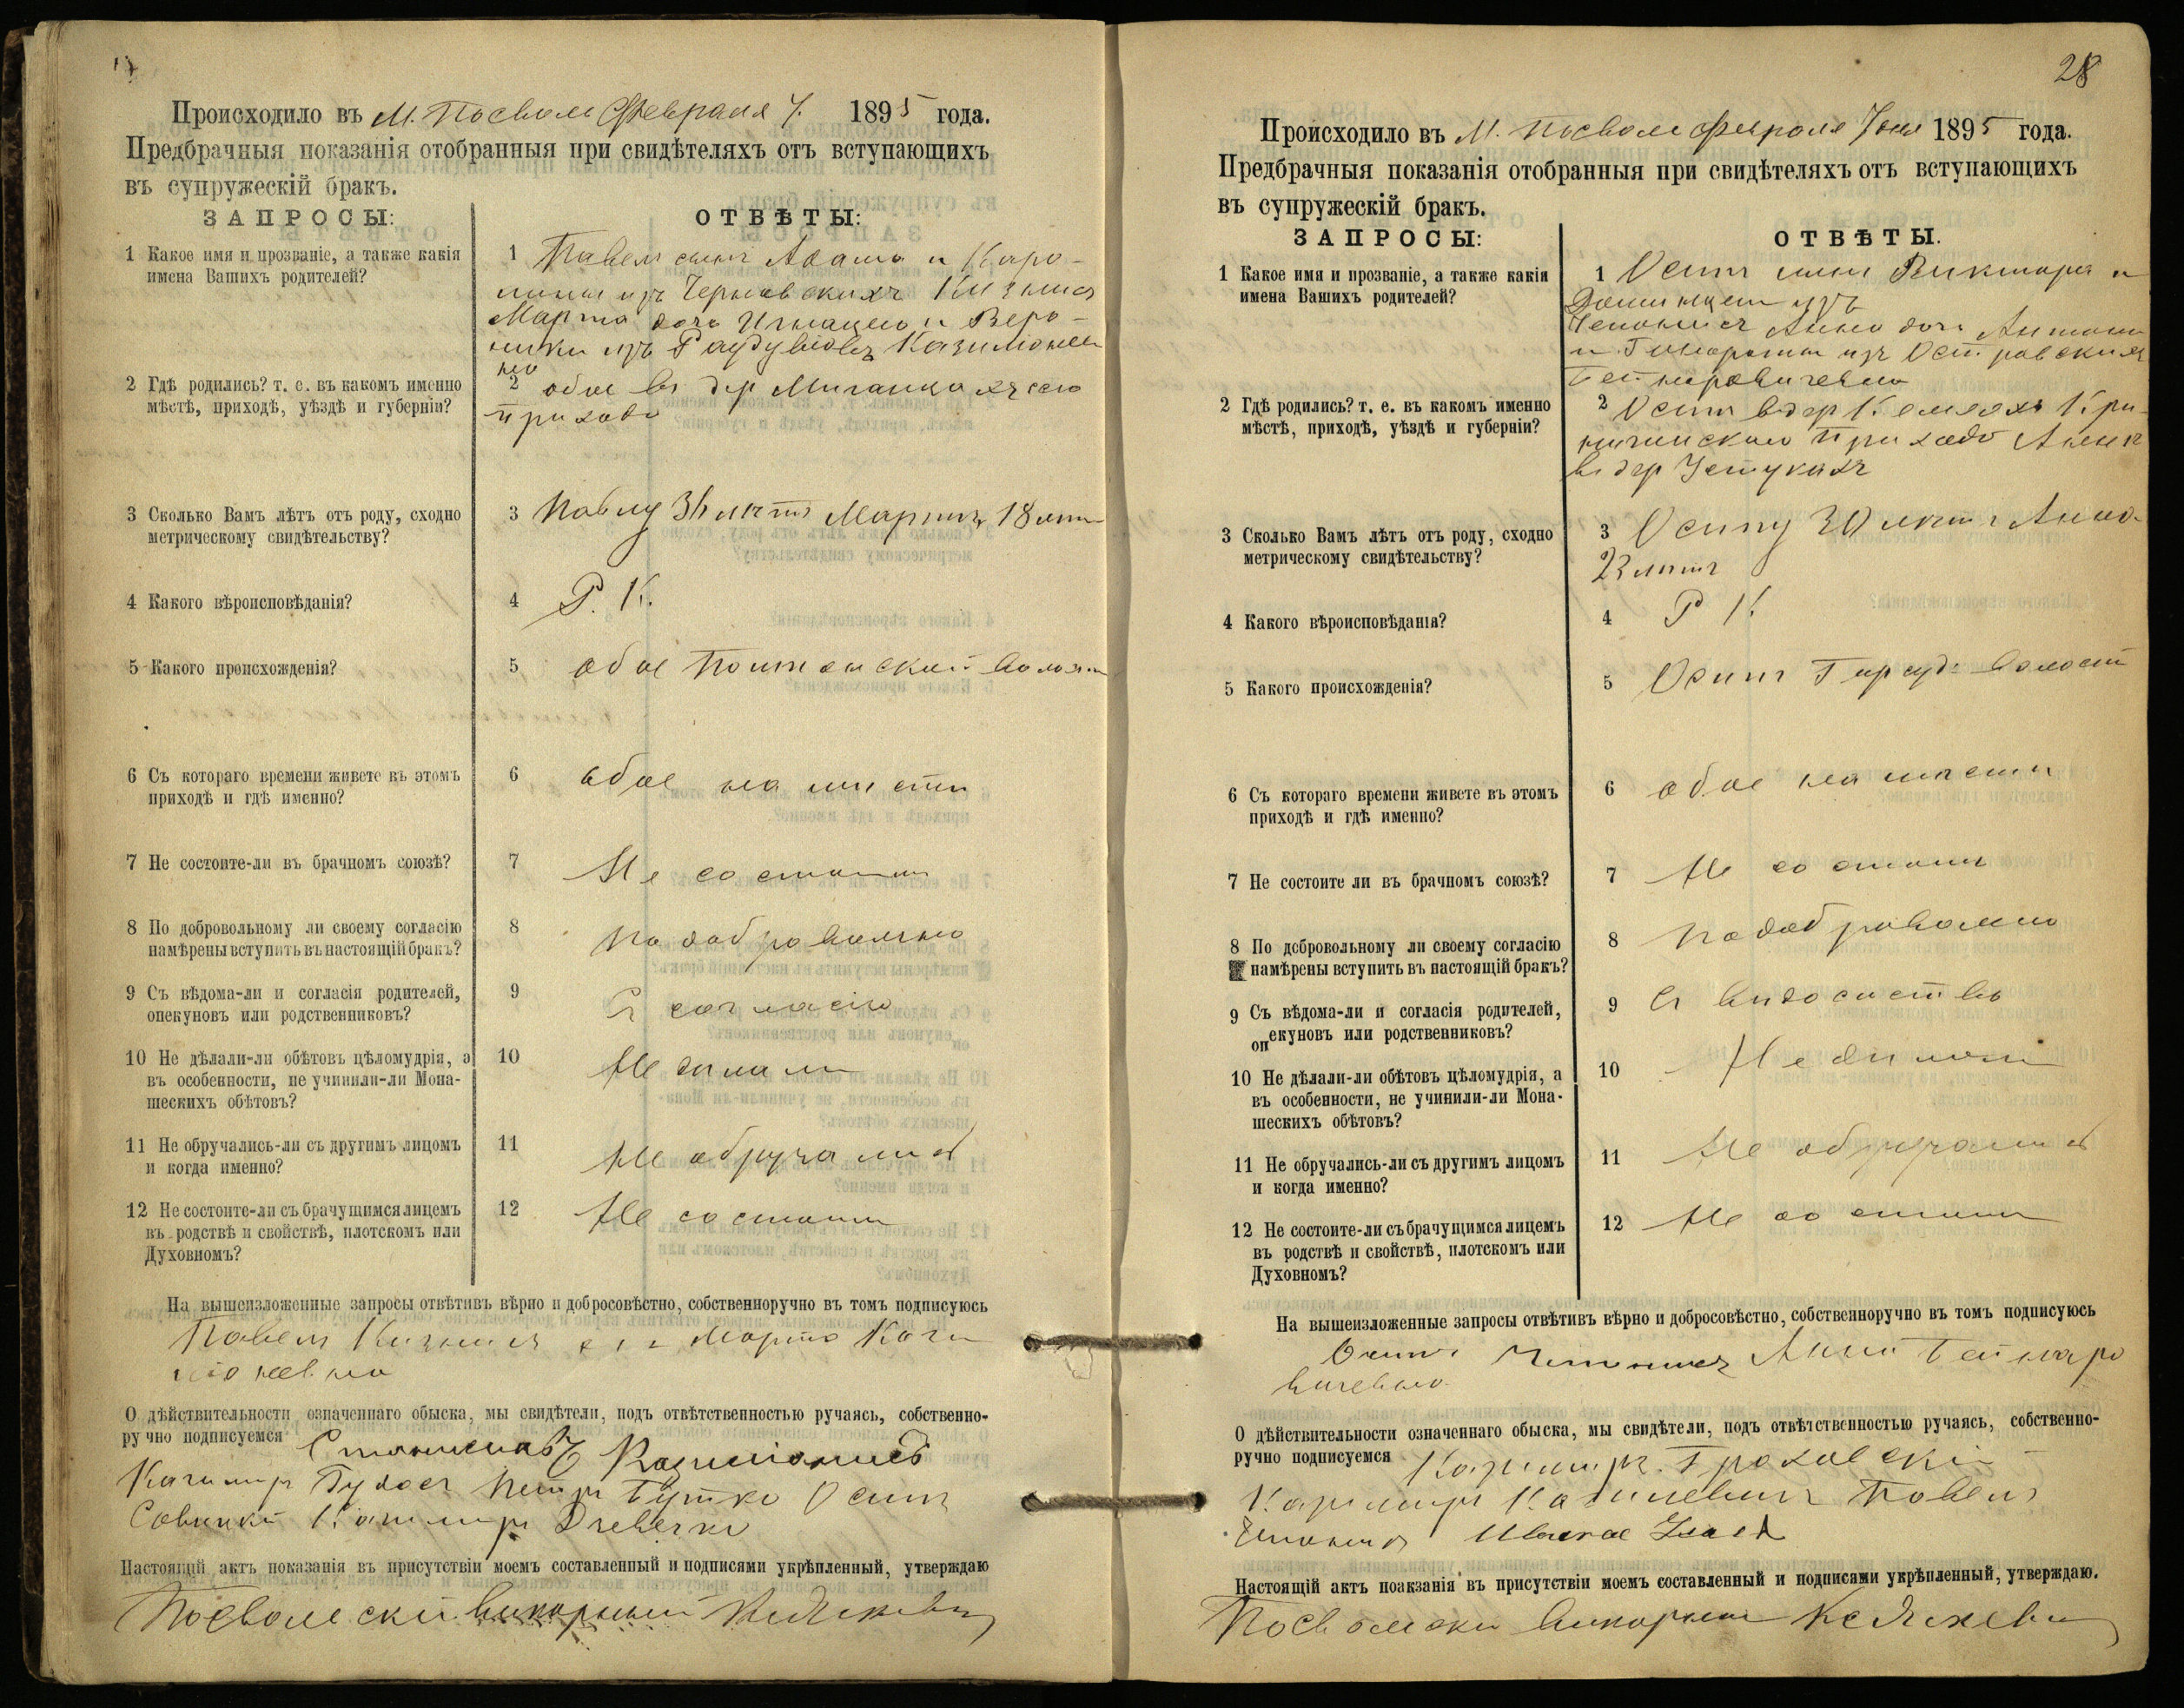 Происходило въ М. Посволе Февраля 7. 1895 года.
Предбрачныя показанія отобранныя при свидѣтеляхъ отъ вступающихъ
въ супружескій бракъ.
ЗАПРОСЫ: ОТВѢТЫ:
1 Какое имя и прозваніе, а также какія
имена Вашихъ родителей?
1 Павелъ сынъ Адама и Каро-
лины изъ Чернавскихъ
Марта дочь Игнацего и Веро-
ники изъ
2 Гдѣ родились? т. е. въ какомъ именно
мѣстѣ, приходѣ, уѣздѣ и губерніи?
2 обое въ дер
прихода
3 Сколько Вамъ лѣтъ отъ роду, сходно
метрическому свидѣтельству?
3 Павлу лѣтъ Марты 18 лѣтъ
4 Какого вѣроисповѣданія?
4 Р. К.
5 Какого происхожденія?
5 обое
6 Съ котораго времени живете въ этомъ
приходѣ и гдѣ именно?
6 обое на мѣсти
7 Не состоите-ли въ брачномъ союзѣ?
7 Не состоимъ
8 По добровольному ли своему согласію
намѣрены вступить въ настоящій бракъ?
8 По добровольно
9 Съ вѣдома-ли и согласія родителей,
опекуновъ или родственниковъ?
9 Съ согласію
10 Не дѣлали-ли обѣтовъ цѣломудрія, а
въ особенности, не учинили-ли Мона-
шескихъ обѣтовъ?
10 Не дилали
11 Не обручались-ли съ другимъ лицомъ
и когда именно?
11 Не обручались
12 Не состоите-ли съ брачущимся лицемъ
въ родствѣ и свойствѣ, плотскомъ или
Духовномъ?
12 Не состоимъ
На вышеизложенные запросы отвѣтивъ вѣрно и добросовѣстно, собственноручно въ томъ подписуюсь
Павелъ Марта
О дѣйствительности означеннаго обыска, мы свидѣтели, подъ отвѣтственностью ручаясь, собственно-
ручно подписуемся Станиславъ
Казимиръ Петръ Осипъ
Савицкій Казимиръ
Настоящій актъ показанія въ присутствіи моемъ составленный и подписями укрѣпленный, утверждаю
Посвольскій викарный
28
Происходило въ М. Посволе Февраля 7 дня 1895 года.
Предбрачныя показанія отобранныя при свидѣтеляхъ отъ вступающихъ
въ супружескій бракъ.
ЗАПРОСЫ: ОТВѢТЫ.
1 Какое имя и прозваніе, а также какія
имена Вашихъ родителей?
1 Осипъ сынъ Виктора и
изъ
Анна дочь Антони
и изъ Островскихъ
2 Гдѣ родились? т. е. въ какомъ именно
мѣстѣ, приходѣ, уѣздѣ и губерніи?
2 Осипъ в дер Кри-
ничинскаго прихода Анна
в дер Устукахъ
3 Сколько Вамъ лѣтъ отъ роду, сходно
метрическому свидѣтельству?
3 Осипу 30 лѣтъ Анна
23 лѣтъ
4 Какого вѣроисповѣданія?
4 Р К.
5 Какого происхожденія?
5 Осипъ волости
6 Съ котораго времени живете въ этомъ
приходѣ и гдѣ именно?
6 обое на мѣсти
7 Не состоите ли въ брачномъ союзѣ?
7 Не состоимъ
8 По добровольному ли своему согласію
намѣрены вступить въ настоящій бракъ?
8 По добровольно
9 Съ вѣдома-ли и согласія родителей,
опекуновъ или родственниковъ?
9 Съ
10 Не дѣлали-ли обѣтовъ цѣломудрія, а
въ особенности, не учинили-ли Мона-
шескихъ обѣтовъ?
10 Не дилали
11 Не обручались-ли съ другимъ лицомъ
и когда именно?
11 Не обручались
12 Не состоите-ли съ брачущимся лицемъ
въ родствѣ и свойствѣ, плотскомъ или
Духовномъ?
12 Не состоимъ
На вышеизложенные запросы отвѣтивъ вѣрно и добросовѣстно, собственноручно въ томъ подписуюсь
Осипъ Анна
О дѣйствительности означеннаго обыска, мы свидѣтели, подъ отвѣтственностью ручаясь, собственно-
ручно подписуемся Казимиръ Гроховскій
Казимиръ Павелъ
Настоящій актъ поакзанія въ присутствіи моемъ составленный и подписями укрѣпленный, утверждаю.
Посвольски викарный